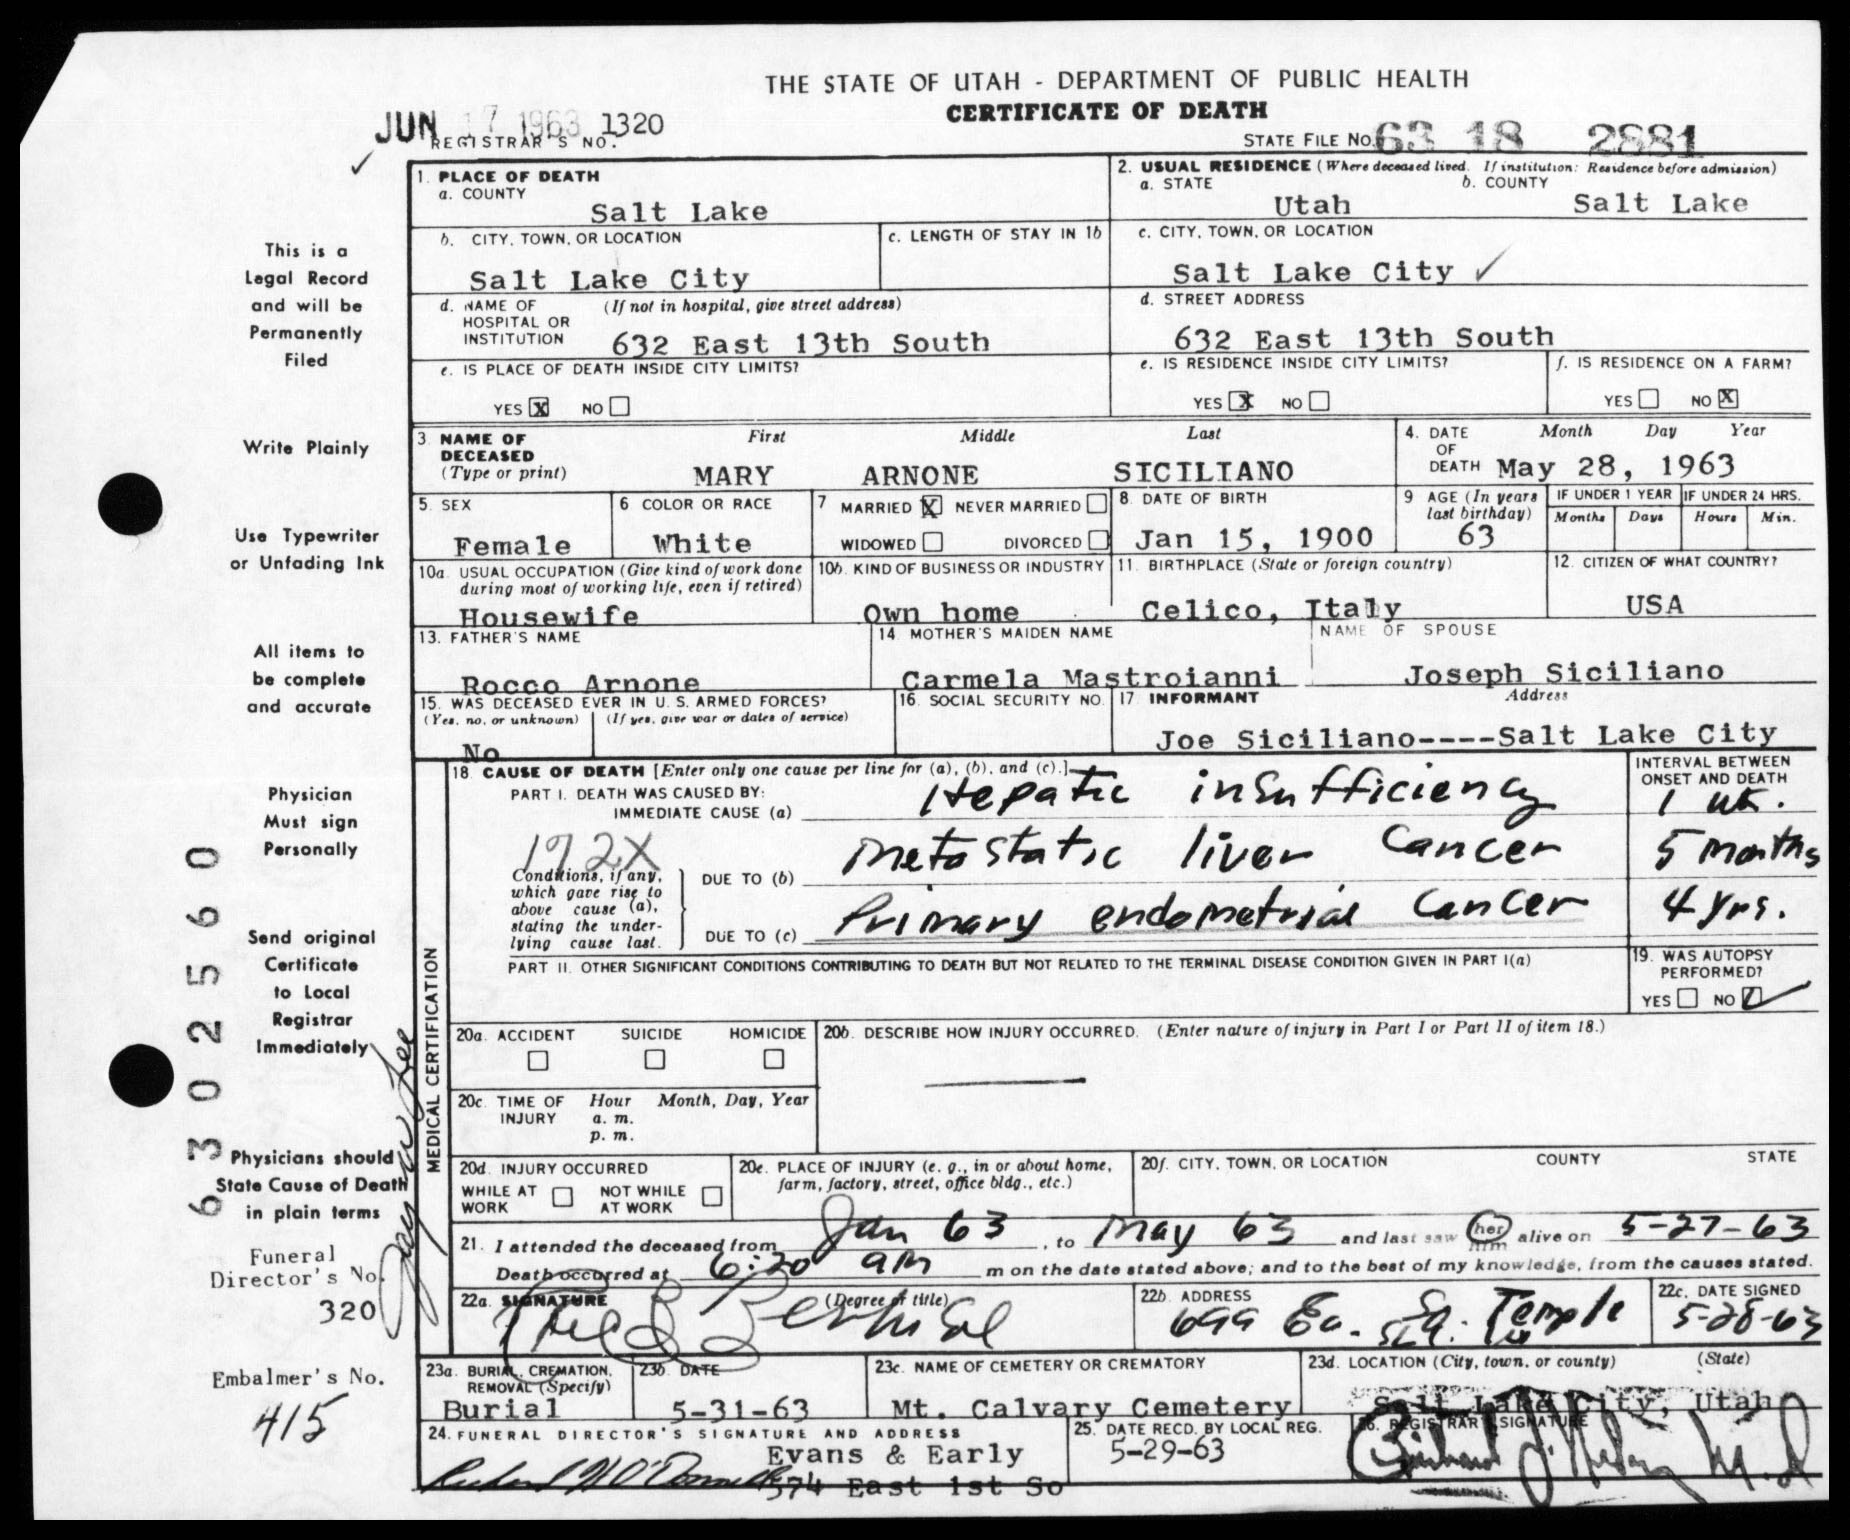 THE STATE OF UTAH - DEPARTMENT OF PUBLIC HEALTH
CERTIFICATE OF DEATH
JUN 17 1963
REGISTRAR'S NO. 1320
STATE FILE NO. 63 18 2881
1. PLACE OF DEATH
a. COUNTY
Salt Lake
2. USUAL RESIDENCE (Where deceased lived. If institution: Residence before admission)
a. STATE
Utah
b. COUNTY
Salt Lake
b. CITY, TOWN, OR LOCATION
Salt Lake City
c. LENGTH OF STAY IN 1b
c. CITY, TOWN, OR LOCATION
Salt Lake City ✓
d. NAME OF HOSPITAL OR INSTITUTION (If not in hospital, give street address)
632 East 13th South
d. STREET ADDRESS
632 East 13th South
e. IS PLACE OF DEATH INSIDE CITY LIMITS?
YES X NO
e. IS RESIDENCE INSIDE CITY LIMITS?
YES X NO
f. IS RESIDENCE ON A FARM?
YES NO X
3. NAME OF DECEASED (Type or print)
First Middle Last
MARY ARNONE SICILIANO
4. DATE OF DEATH
Month Day Year
May 28, 1963
5. SEX
Female
6 COLOR OR RACE
White
7 MARRIED X NEVER MARRIED
WIDOWED DIVORCED
8. DATE OF BIRTH
Jan 15, 1900
9 AGE (In years last birthday)
63
IF UNDER 1 YEAR
Months Days
IF UNDER 24 HRS.
Hours Min.
10a. USUAL OCCUPATION (Give kind of work done during most of working life, even if retired)
Housewife
10b. KIND OF BUSINESS OR INDUSTRY
Own home
11. BIRTHPLACE (State or foreign country)
Celico, Italy
12. CITIZEN OF WHAT COUNTRY?
USA
13. FATHER'S NAME
Rocco Arnone
14. MOTHER'S MAIDEN NAME
Carmela Mastroianni
NAME OF SPOUSE
Joseph Siciliano
15. WAS DECEASED EVER IN U.S. ARMED FORCES?
(Yes, no, or unknown) (If yes, give war or dates of service)
No
16. SOCIAL SECURITY NO.
17 INFORMANT Address
Joe Siciliano----Salt Lake City
MEDICAL CERTIFICATION
18. CAUSE OF DEATH [Enter only one cause per line for (a), (b), and (c).]
PART I. DEATH WAS CAUSED BY:
IMMEDIATE CAUSE (a) Hepatic insufficiency
INTERVAL BETWEEN ONSET AND DEATH
1 wk.
172X
Conditions, if any, which gave rise to above cause (a), stating the underlying cause last.
DUE TO (b) Metastatic liver cancer
5 months
DUE TO (c) Primary endometrial cancer
4 yrs.
PART II. OTHER SIGNIFICANT CONDITIONS CONTRIBUTING TO DEATH BUT NOT RELATED TO THE TERMINAL DISEASE CONDITION GIVEN IN PART I(a)
19. WAS AUTOPSY PERFORMED?
YES NO ✓
20a. ACCIDENT SUICIDE HOMICIDE
20b. DESCRIBE HOW INJURY OCCURRED. (Enter nature of injury in Part I or Part II of item 18.)
20c. TIME OF INJURY
Hour Month, Day, Year
a. m.
p. m.
20d. INJURY OCCURRED
WHILE AT WORK NOT WHILE AT WORK
20e. PLACE OF INJURY (e. g., in or about home, farm, factory, street, office bldg., etc.)
20f. CITY, TOWN, OR LOCATION COUNTY STATE
21. I attended the deceased from Jan 63, to May 63 and last saw her him alive on 5-27-63
Death occurred at 6:20 am m on the date stated above; and to the best of my knowledge, from the causes stated.
22a. SIGNATURE (Degree or title)
22b. ADDRESS
699 Ea. So. Temple
22c. DATE SIGNED
5-28-63
23a. BURIAL, CREMATION, REMOVAL (Specify)
Burial
23b. DATE
5-31-63
23c. NAME OF CEMETERY OR CREMATORY
Mt. Calvary Cemetery
23d. LOCATION (City, town, or county) (State)
Salt Lake City, Utah
24. FUNERAL DIRECTOR'S SIGNATURE AND ADDRESS
Evans & Early
574 East 1st So
25. DATE RECD. BY LOCAL REG.
5-29-63
26. REGISTRAR'S SIGNATURE
This is a
Legal Record
and will be
Permanently
Filed
Write Plainly
Use Typewriter
or Unfading Ink
All items to
be complete
and accurate
Physician
Must sign
Personally
Send original
Certificate
to Local
Registrar
Immediately
Physicians should
State Cause of Death
in plain terms
Funeral
Director's No.
320
Embalmer's No.
415
6302560